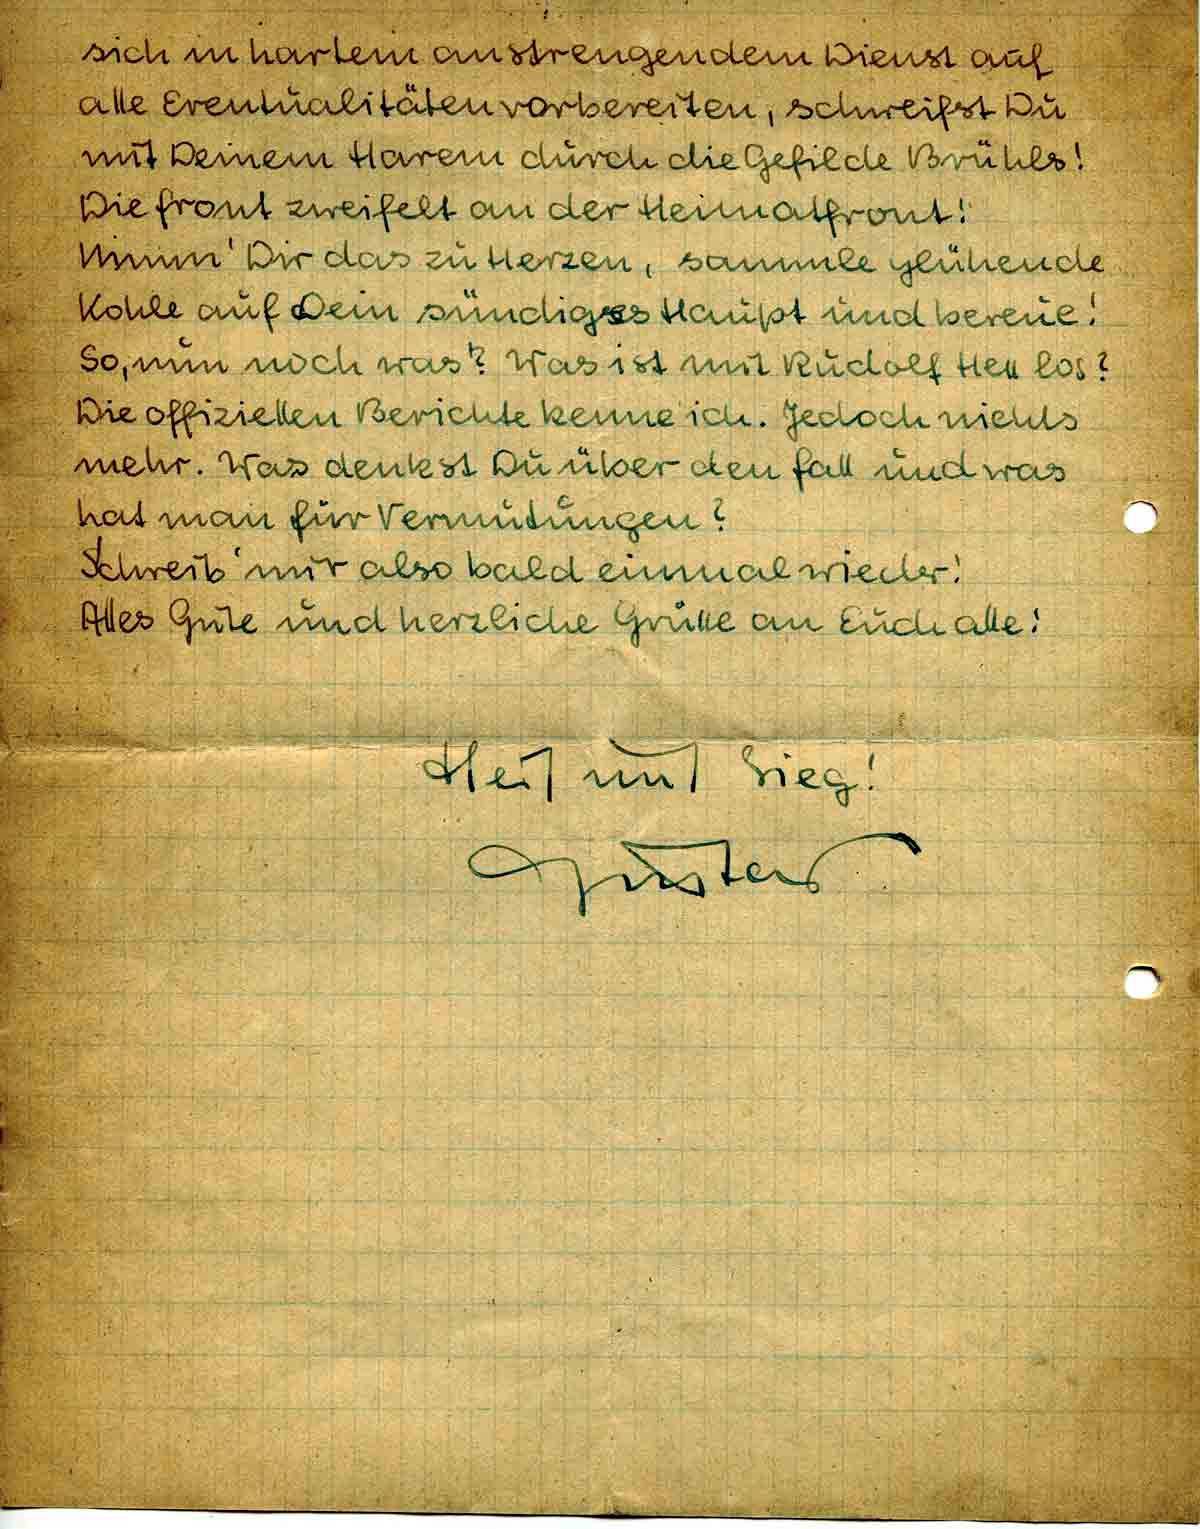 sich in hartem anstrengendem Dienst auf
alle Eventualitäten vorbereiten, schweifst Du
mit Deinem Harem durch die Gefilde Brühls!
Die Front zweifelt an der Heimatfront!
Nimm' Dir das zu Herzen, sammle glühende
Kohle auf Dein sündiges Haupt und bereue!
So, nun noch was? Was ist mit Rudolf Heß los?
Die offiziellen Berichte kenne ich. Jedoch nichts
mehr. Was denkst Du über den Fall und was
hat man für Vermutungen?
Schreib' mir also bald einmal wieder!
Alles Gute und herzliche Grüße an Euch alle!
Heil und Sieg!
Gustav